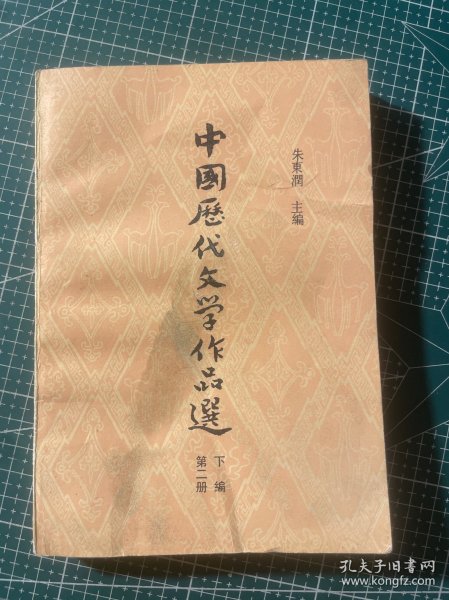 朱東潤 主編
中國歷代文学作品選
下編
第二册
孔夫子旧书网
www.kongfz.com